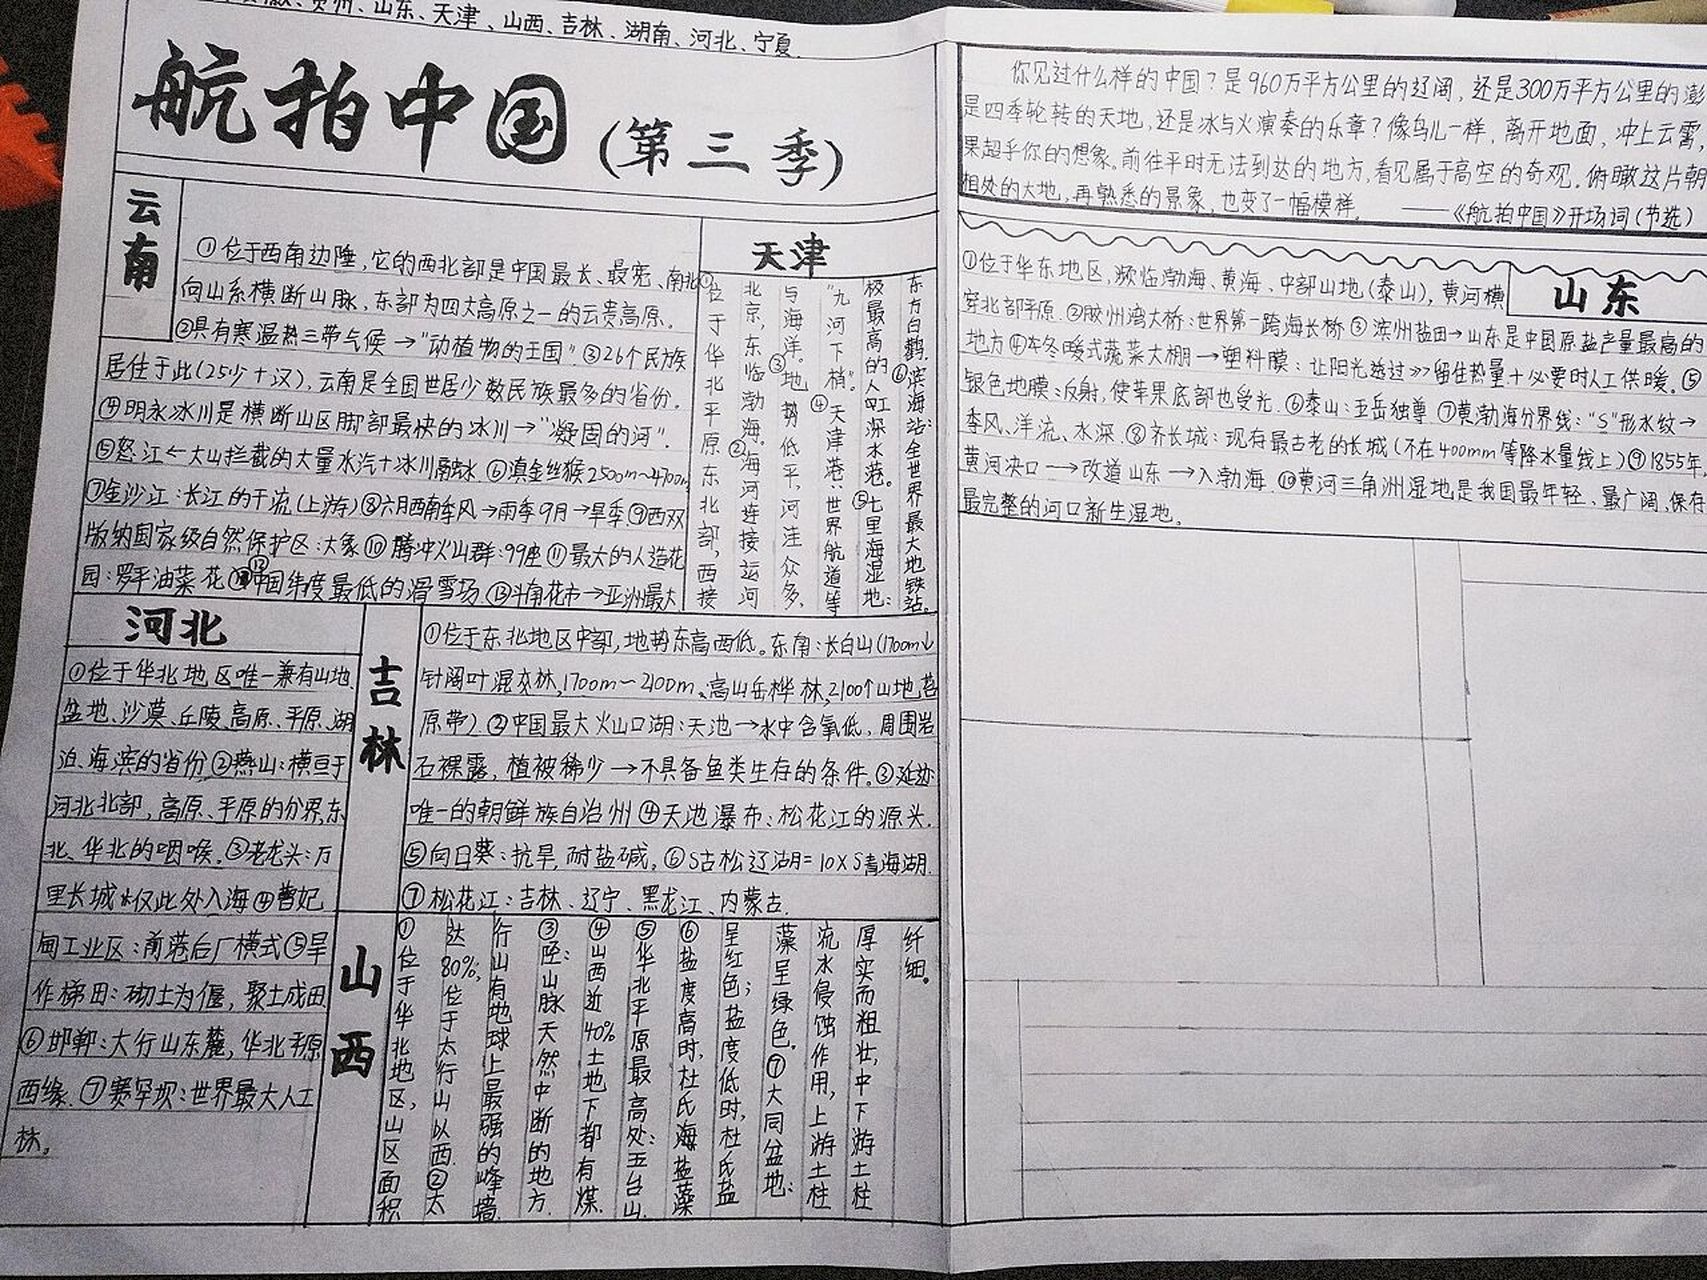 贵州、山东、天津、山西、吉林、湖南、河北、宁夏
航拍中国(第三季)
你见过什么样的中国?是960万平方公里的辽阔,还是300万平方公里的澎
是四季轮转的天地,还是冰与火演奏的乐章?像鸟儿一样,离开地面,冲上云霄,
果超乎你的想象。前往平时无法到达的地方,看见属于高空的奇观。俯瞰这片朝
相处的大地,再熟悉的景象,也变了一幅模样。——《航拍中国》开场词(节选)
云南
①位于西南边陲,它的西北部是中国最长、最宽、南北
向山系横断山脉,东部为四大高原之一的云贵高原。
②具有寒温热三带气候→"动植物的王国"③26个民族
居住于此(25少+汉),云南是全国世居少数民族最多的省份。
④明永冰川是横断山区脚部最快的冰川→"凝固的河".
⑤怒江←大山拦截的大量水汽+冰川融水⑥滇金丝猴2500m~4700m
⑦金沙江:长江的干流(上游)⑧六月西南季风→雨季9月→旱季⑨西双
版纳国家级自然保护区:大象⑩腾冲火山群:99座⑪最大的人造花
园:罗平油菜花⑫中国纬度最低的滑雪场.⑬斗南花市→亚洲最大
天津
①位于华北平原东北部,西接
北京,东临渤海。②海河连接运河
与海洋。③地势低平,河洼众多,
"九河下梢"。④天津港:世界航道等
极最高的人工深水港。⑤七里海湿地:
东方白鹳.⑥滨海站:全世界最大地铁站。
山东
①位于华东地区,濒临渤海、黄海、中部山地(泰山),黄河横
穿北部平原.②胶州湾大桥:世界第一跨海长桥③滨州盐田→山东是中国原盐产量最高的
地方④冬暖式蔬菜大棚→塑料膜:让阳光透过>>留住热量+必要时人工供暖.⑤
银色地膜:反射,使苹果底部也受光.⑥泰山:五岳独尊⑦黄渤海分界线:"S"形水纹→
季风、洋流、水深.⑧齐长城:现存最古老的长城(不在400mm等降水量线上)⑨1855年,
黄河决口→改道山东→入渤海.⑩黄河三角洲湿地是我国最年轻、最广阔、保存
最完整的河口新生湿地。
河北
①位于华北地区唯一兼有山地、
盆地、沙漠、丘陵、高原、平原、湖
泊、海滨的省份②燕山:横亘于
河北北部,高原、平原的分界,东
北、华北的咽喉.③老龙头:万
里长城*仅此处入海④曹妃
甸工业区:前港后厂模式⑤旱
作梯田:砌土为偃,聚土成田
⑥邯郸:太行山东麓,华北平原
西缘.⑦塞罕坝:世界最大人工
林。
吉林
①位于东北地区中部,地势东高西低。东南:长白山(1700m↓
针阔叶混交林,1700m~2100m、高山岳桦林,2100↑山地苔
原带).②中国最大火山口湖:天池→水中含氧低,周围岩
石裸露,植被稀少→不具备鱼类生存的条件.③延边
唯一的朝鲜族自治州④天池瀑布:松花江的源头.
⑤向日葵:抗旱,耐盐碱.⑥S古松辽湖=10×S青海湖.
⑦松花江:吉林、辽宁、黑龙江、内蒙古.
山西
①位于华北地区,山区面积
达80%,位于太行山以西.②太
行山有地球上最强的峰墙.
③陉:山脉天然中断的地方.
④山西近40%土地下都有煤.
⑤华北平原最高处:五台山.
⑥盐度高时,杜氏海盐藻
呈红色;盐度低时,杜氏盐
藻呈绿色.⑦大同盆地:
流水侵蚀作用,上游土柱
厚实而粗壮,中下游土柱
纤细。